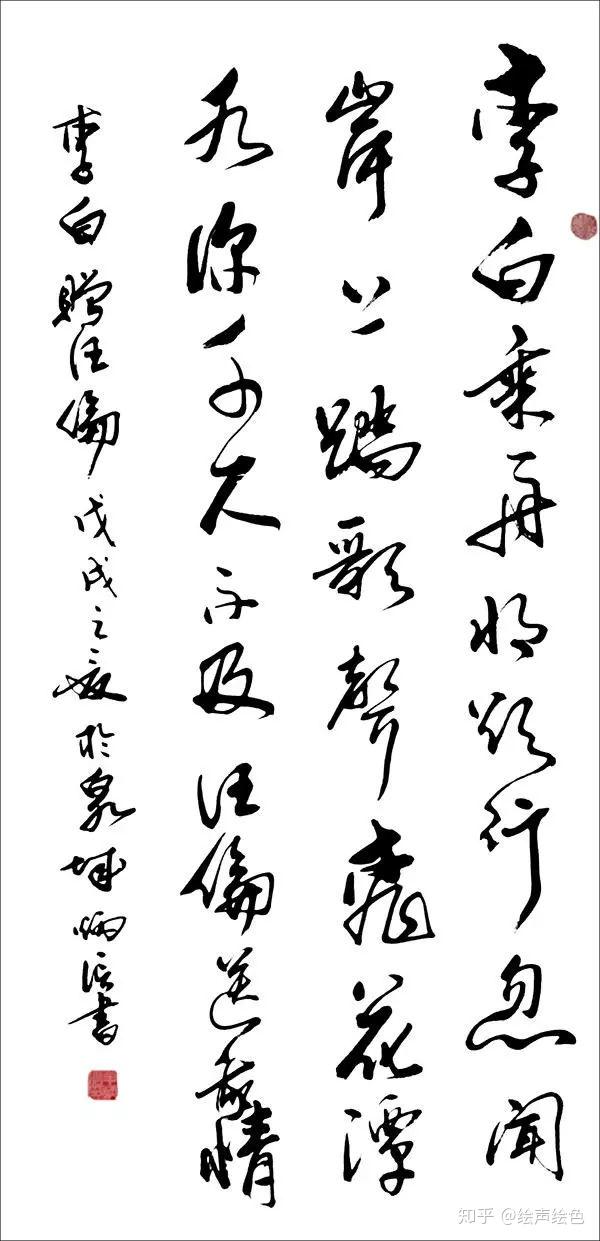 李白乘舟將欲行忽聞
岸上踏歌聲桃花潭
水深千尺不及汪倫送我情
李白贈汪倫 戊戌之夏於泉城炳
書
知乎 @绘声绘色